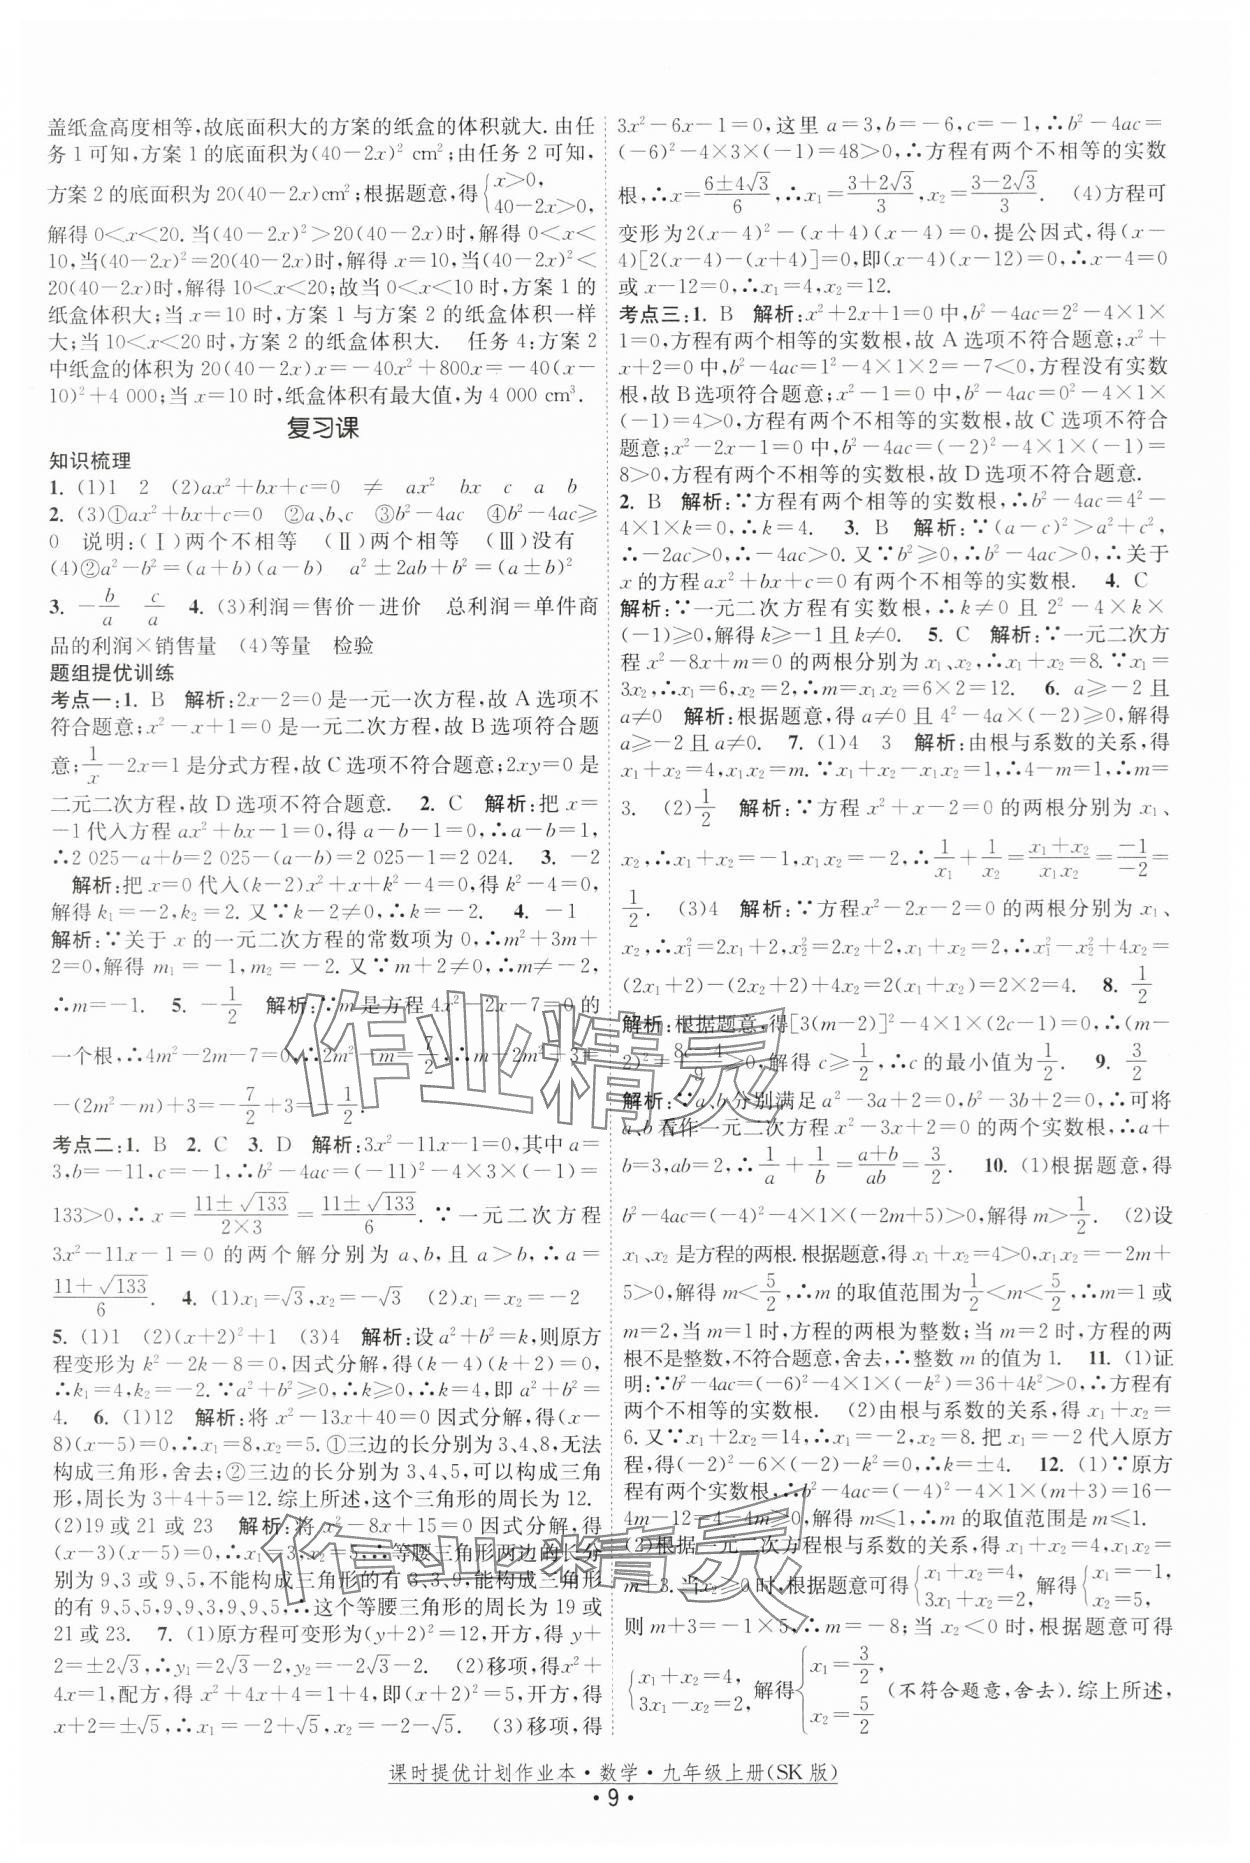 盖纸盒高度相等,故底面积大的方案的纸盒的体积就大.由任
务1可知,方案1的底面积为(40-2x)² cm²;由任务2可知,
方案2的底面积为20(40-2x)cm²;根据题意,得{x>0, 40-2x>0,
解得0<x<20.当(40-2x)²>20(40-2x)时,解得0<x<
10,当(40-2x)²=20(40-2x)时,解得x=10,当(40-2x)²<
20(40-2x)时,解得10<x<20;故当0<x<10时,方案1的
纸盒体积大;当x=10时,方案1与方案2的纸盒体积一样
大;当10<x<20时,方案2的纸盒体积大. 任务4:方案2
中纸盒的体积为20(40-2x)x=-40x²+800x=-40(x-
10)²+4 000;当x=10时,纸盒体积有最大值,为4 000 cm³.
复习课
知识梳理
1. (1)1 2 (2)ax²+bx+c=0 ≠ ax² bx c a b
2. (3)①ax²+bx+c=0 ②a、b、c ③b²-4ac ④b²-4ac≥
0 说明:(Ⅰ)两个不相等 (Ⅱ)两个相等 (Ⅲ)没有
(4)②a²-b²=(a+b)(a-b) a²±2ab+b²=(a±b)²
3. -b/a c/a 4. (3)利润=售价-进价 总利润=单件商
品的利润×销售量 (4)等量 检验
题组提优训练
考点一:1. B 解析:2x-2=0是一元一次方程,故A选项不
符合题意;x²-x+1=0是一元二次方程,故B选项符合题
意;1/x-2x=1是分式方程,故C选项不符合题意;2xy=0是
二元二次方程,故D选项不符合题意. 2. C 解析:把x=
-1代入方程ax²+bx-1=0,得a-b-1=0,∴a-b=1,
∴2 025-a+b=2 025-(a-b)=2 025-1=2 024. 3. -2
解析:把x=0代入(k-2)x²+x+k²-4=0,得k²-4=0,
解得k₁=-2,k₂=2.又∵k-2≠0,∴k=-2. 4. -1
解析:∵关于x的一元二次方程的常数项为0,∴m²+3m+
2=0,解得m₁=-1,m₂=-2.又∵m+2≠0,∴m≠-2,
∴m=-1. 5. -1/2 解析:∵m是方程4x²-2x-7=0的
一个根,∴4m²-2m-7=0,∴2m²-m=7/2,∴m-2m²+3=
-(2m²-m)+3=-7/2+3=-1/2.
考点二:1. B 2. C 3. D 解析:3x²-11x-1=0,其中a=
3,b=-11,c=-1,∴b²-4ac=(-11)²-4×3×(-1)=
133>0,∴x=(11±√133)/(2×3)=(11±√133)/6.∵一元二次方程
3x²-11x-1=0的两个解分别为a、b,且a>b,∴a=
(11+√133)/6. 4. (1)x₁=√3,x₂=-√3 (2)x₁=x₂=-2
5. (1)1 (2)(x+2)²+1 (3)4 解析:设a²+b²=k,则原方
程变形为k²-2k-8=0,因式分解,得(k-4)(k+2)=0,
∴k₁=4,k₂=-2.∵a²+b²≥0,∴k=4,即a²+b²=
4. 6. (1)12 解析:将x²-13x+40=0因式分解,得(x-
8)(x-5)=0,∴x₁=8,x₂=5.①三边的长分别为3、4、8,无法
构成三角形,舍去;②三边的长分别为3、4、5,可以构成三角
形,周长为3+4+5=12.综上所述,这个三角形的周长为12.
(2)19或21或23 解析:将x²-8x+15=0因式分解,得
(x-3)(x-5)=0,∴x₁=3,x₂=5.∴等腰三角形两边的长分
别为9、3或9、5,不能构成三角形的有3、3、9,能构成三角形
的有9、5、5,9、9、3,9、9、5,∴这个等腰三角形的周长为19或
21或23. 7. (1)原方程可变形为(y+2)²=12,开方,得y+
2=±2√3,∴y₁=2√3-2,y₂=-2√3-2. (2)移项,得x²+
4x=1,配方,得x²+4x+4=1+4,即(x+2)²=5,开方,得
x+2=±√5,∴x₁=-2+√5,x₂=-2-√5. (3)移项,得
3x²-6x-1=0,这里a=3,b=-6,c=-1,∴b²-4ac=
(-6)²-4×3×(-1)=48>0,∴方程有两个不相等的实数
根,∴x=(6±4√3)/6,∴x₁=(3+2√3)/3,x₂=(3-2√3)/3. (4)方程可
变形为2(x-4)²-(x+4)(x-4)=0,提公因式,得(x-
4)[2(x-4)-(x+4)]=0,即(x-4)(x-12)=0,∴x-4=0
或x-12=0,∴x₁=4,x₂=12.
考点三:1. B 解析:x²+2x+1=0中,b²-4ac=2²-4×1×
1=0,方程有两个相等的实数根,故A选项不符合题意;x²+
x+2=0中,b²-4ac=1²-4×1×2=-7<0,方程没有实数
根,故B选项符合题意;x²-1=0中,b²-4ac=0²-4×1×
(-1)=4>0,方程有两个不相等的实数根,故C选项不符合
题意;x²-2x-1=0中,b²-4ac=(-2)²-4×1×(-1)=
8>0,方程有两个不相等的实数根,故D选项不符合题意.
2. B 解析:∵方程有两个相等的实数根,∴b²-4ac=4²-
4×1×k=0,∴k=4. 3. B 解析:∵(a-c)²>a²+c²,
∴-2ac>0,∴-4ac>0.又∵b²≥0,∴b²-4ac>0,∴关于
x的方程ax²+bx+c=0有两个不相等的实数根. 4. C
解析:∵一元二次方程有实数根,∴k≠0且2²-4×k×
(-1)≥0,解得k≥-1且k≠0. 5. C 解析:∵一元二次方
程x²-8x+m=0的两根分别为x₁、x₂,∴x₁+x₂=8.∵x₁=
3x₂,∴x₁=6,x₂=2,∴m=x₁x₂=6×2=12. 6. a≥-2且
a≠0 解析:根据题意,得a≠0且4²-4a×(-2)≥0,解得
a≥-2且a≠0. 7. (1)4 3 解析:由根与系数的关系,得
x₁+x₂=4,x₁x₂=m.∵x₁+x₂-x₁x₂=1,∴4-m=1,∴m=
3. (2)1/2 解析:∵方程x²+x-2=0的两根分别为x₁、
x₂,∴x₁+x₂=-1,x₁x₂=-2,∴1/x₁+1/x₂=(x₁+x₂)/(x₁x₂)=-1/-2=
1/2. (3)4 解析:∵方程x²-2x-2=0的两根分别为x₁、
x₂,∴x₁²=2x₁+2,x₂²=2x₂+2,x₁+x₂=2,∴x₁²-x₂²+4x₂=
(2x₁+2)-(2x₂+2)+4x₂=2(x₁+x₂)=2×2=4. 8. 1/2
解析:根据题意,得[3(m-2)]²-4×1×(2c-1)=0,∴(m-
2)²=(8c-4)/9≥0,解得c≥1/2,∴c的最小值为1/2. 9. 3/2
解析:∵a、b分别满足a²-3a+2=0,b²-3b+2=0,∴可将
a、b看作一元二次方程x²-3x+2=0的两个实数根,∴a+
b=3,ab=2,∴1/a+1/b=(a+b)/ab=3/2. 10. (1)根据题意,得
b²-4ac=(-4)²-4×1×(-2m+5)>0,解得m>1/2. (2)设
x₁、x₂是方程的两根.根据题意,得x₁+x₂=4>0,x₁x₂=-2m+
5>0,解得m<5/2,∴m的取值范围为1/2<m<5/2,∴m=1或
m=2,当m=1时,方程的两根为整数;当m=2时,方程的两
根不是整数,不符合题意,舍去,∴整数m的值为1. 11. (1)证
明:∵b²-4ac=(-6)²-4×1×(-k²)=36+4k²>0,∴方程有
两个不相等的实数根. (2)由根与系数的关系,得x₁+x₂=
6.又∵x₁+2x₂=14,∴x₁=-2,x₂=8.把x₁=-2代入原方
程,得(-2)²-6×(-2)-k²=0,∴k=±4. 12. (1)∵原方
程有两个实数根,∴b²-4ac=(-4)²-4×1×(m+3)=16-
4m-12=4-4m≥0,解得m≤1,∴m的取值范围是m≤1.
(2)根据一元二次方程根与系数的关系,得x₁+x₂=4,x₁x₂=
m+3.当x₂≥0时,根据题意可得{x₁+x₂=4, 3x₁+x₂=2, 解得{x₁=-1, x₂=5,
则m+3=-1×5,∴m=-8;当x₂<0时,根据题意可得
{x₁+x₂=4, 3x₁-x₂=2, 解得{x₁=3/2, x₂=5/2 (不符合题意,舍去).综上所述,
课时提优计划作业本·数学·九年级上册(SK版)
·9·
作业精灵
作业精灵